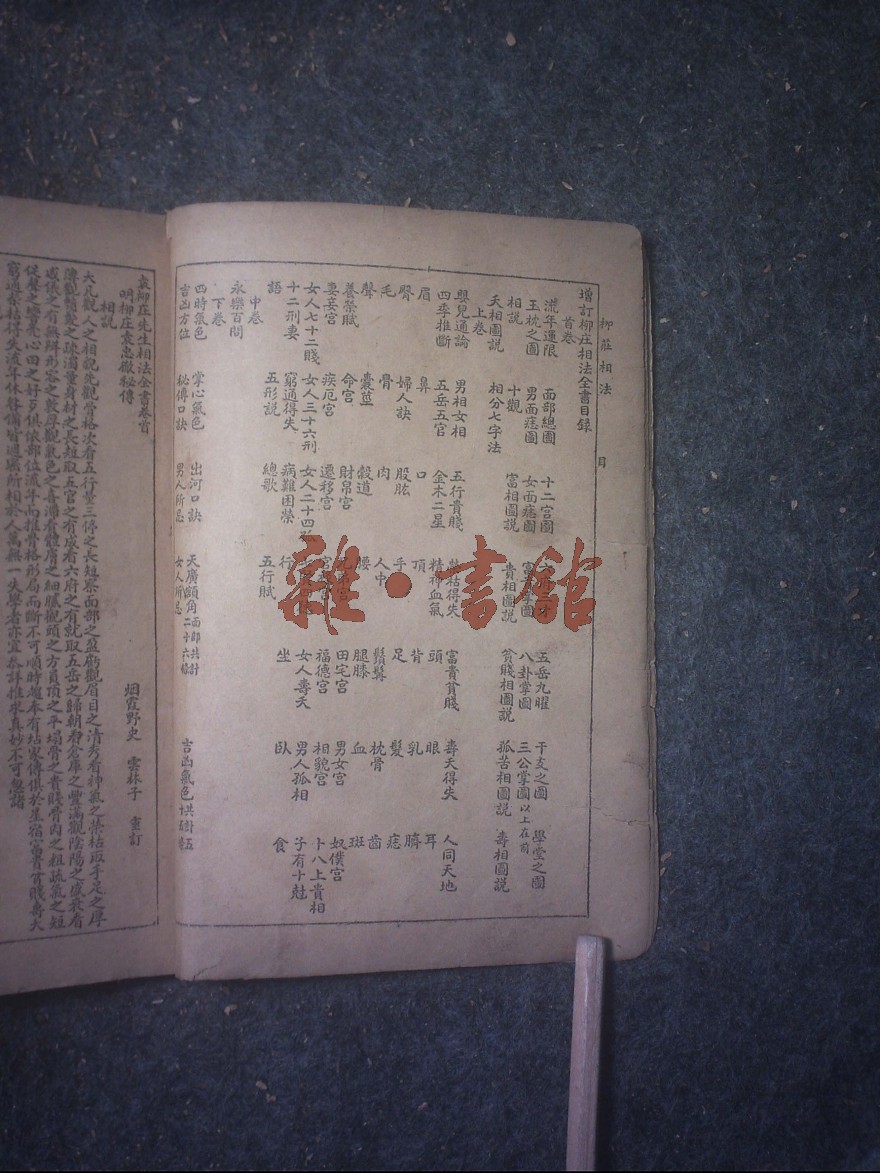 柳莊相法
目
增訂柳庄相法全書目錄
首卷
流年運限 面部總圖 十二宮圖 五岳九曜 干支之圖 學堂之圖
玉枕之圖 男面痣圖 女面痣圖 八卦掌圖 三公掌圖以上在前
相說 十觀 富相圖說 貴相圖說 貧賤相圖說 孤苦相圖說 壽相圖說
夭相圖說 相分七字法
上卷
嬰兒通論 男相女相 五行貴賤 榮枯得失 富貴貧賤 壽夭得失 人同天地
四季推斷 五岳五官 金木二星 精神血氣
眉 鼻 口 頂 頭 眼 耳
臀 婦人訣 股肱 手 背 乳 臍
毛 骨 肉 人中 足 髮 痣
聲 囊莖 穀道 腰 鬚髯 枕骨 齒
養榮賦 命宮 財帛宮 腿膝 血 斑
妻妾宮 疾厄宮 遷移宮 田宅宮 男女宮 奴僕宮
女人七十二賤 女人三十六刑 女人二十四 福德宮 相貌宮 卜八上貴相
十二刑妻 窮通得失 病難困榮 女人壽夭 男人孤相 子有十尅
語 五形說 總歌 行 坐 臥 食
五行賦
中卷
永樂百問
下卷
四時氣色 掌心氣色 出河口訣 天廣額角二十六條 面部共計
吉凶方位 秘傳口訣 男人所忌 女人所忌 吉凶氣色共計五
袁柳庄先生相法全書卷首
明柳庄袁忠徹秘傳 烟霞野史 雲林子 重訂
相說
大凡觀人之相貌先觀骨格次看五行量三停之長短察面部之盈虧觀眉目之清秀看神氣之榮枯取手足之厚
薄觀鬚髮之疎濁量身材之長短取五官之有成看六府之有就取五岳之歸朝看倉庫之豐滿觀陰陽之盛衰看
威儀之有無辨形容之敦厚觀氣色之喜滯看體膚之細膩觀頭之方員頂之平塌骨之貴賤骨肉之粗疏氣之短
促聲之嚮亮心田之好歹俱依部位流年而推骨格形局而斷不可順時趨奉有玷家傳俱於星宿富貴貧賤壽夭
窮通榮枯得失流年休咎備皆週密所相於人萬無一失學者亦宜參詳推求真妙不可忽諸
雜·書館